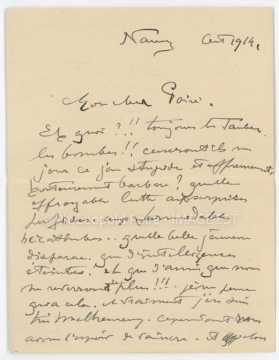 Nancy Août 1914.
Mon cher Poiré.
Eh quoi ?!! toujours les Taubes
les bombes !! cesseront ils un
jour ce jeu stupide et affreusement
barbare ? quelle
effroyable lutte
quelle belle jeunesse
disparue. que d'intelligences
éteintes. et que d'amis que nous
ne reverrons plus !!
et vraiment j'en suis
très malheureux. cependant nous
avons l'espoir de vaincre. et